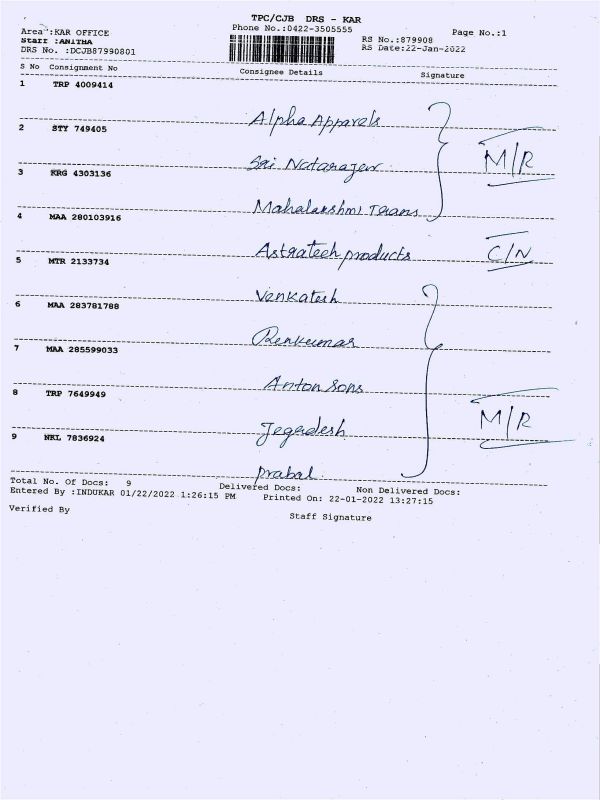 TPC/CJB DRS - KAR
Phone No.:0422-3505555
Area :KAR OFFICE
Staff :ANITHA
DRS No. :DCJB87990801
RS No.:879908
RS Date:22-Jan-2022
Page No.:1
S No Consignment No Consignee Details Signature
1 TRP 4009414
Alpha Apparels
2 STY 749405
Sri Natarajen
M/R
3 KRG 4303136
Mahalakshmi Teans
4 MAA 280103916
Astratech products C/N
5 MTR 2133734
Venkatesh
6 MAA 283781788
Renkumar
7 MAA 285599033
Anton sons
8 TRP 7649949
Jegadesh M/R
9 NKL 7836924
Prabal
Total No. Of Docs: 9 Delivered Docs: Non Delivered Docs:
Entered By :INDUKAR 01/22/2022 1:26:15 PM Printed On: 22-01-2022 13:27:15
Verified By Staff Signature